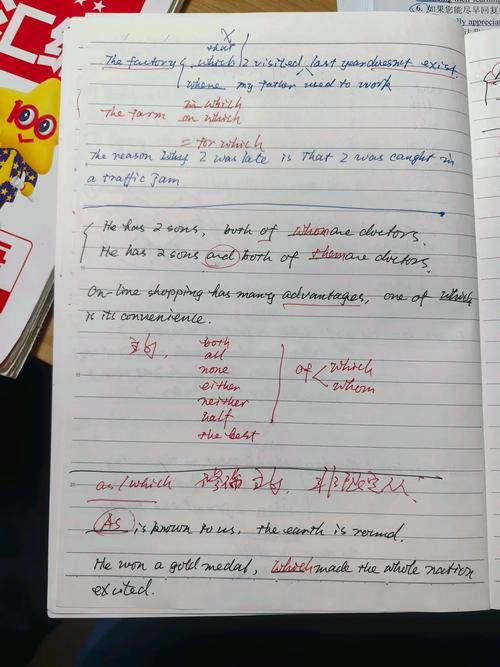 汇
6. 如果您能尽早回复
that
The factory which I visited last year doesn't exist.
where my father used to work
in which
The farm on which
= for which
The reason why I was late is that I was caught in
a traffic jam
He has 2 sons, both of whom are doctors.
He has 2 sons and both of them are doctors.
On-line shopping has many advantages, one of which
is its convenience.
主句,
both
all
none
either
neither
half
the best
of which
whom
as/which 修饰主句, 非限定从
As is known to us, the earth is round.
He won a gold medal, which made the whole nation
excited.
100